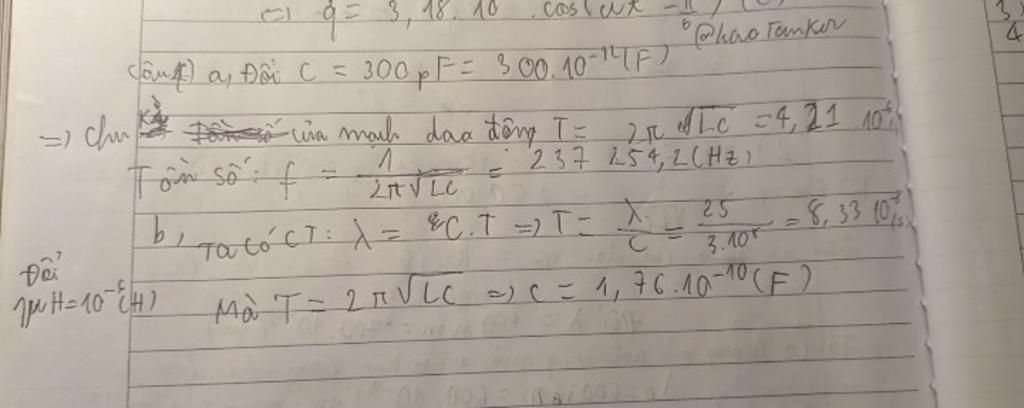 <=> q = 3,18.10 .cos(ωt - π/6) (C)
@haoTanker
Câu 4) a, Đổi C = 300pF = 300.10⁻¹²(F)
=> Chu kỳ của mạch dao động T = 2π√LC = 4,21 10⁻⁶
Tần số: f = 1/2π√LC = 237 254,2(Hz)
b, Ta có CT: λ = C.T => T = λ/C = 25/3.10⁸ = 8,33 10⁻⁸(s)
Đổi
1μH = 10⁻⁶(H)
Mà T = 2π√LC => C = 1,76.10⁻¹⁰(F)
3)
4